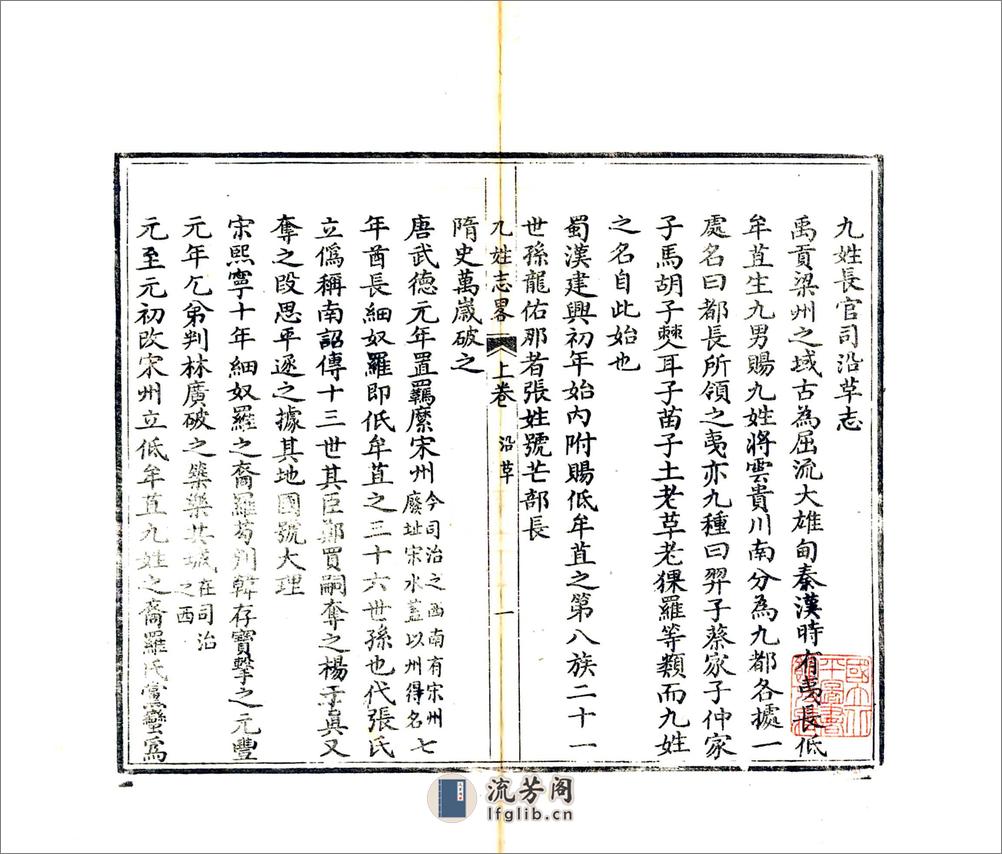 九姓長官司沿革志
禹貢梁州之域古為屈流大雄甸秦漢時有夷長低
牟苴生九男賜九姓將雲貴川南分為九都各據一
處名曰都長所領之夷亦九種曰羿子蔡家子仲家
子馬胡子僰耳子苗子土老草老猓羅等類而九姓
之名自此始也
蜀漢建興初年始內附賜低牟苴之第八族二十一
世孫龍佑那者張姓號芒部長
九姓志畧 上卷 沿革 一
隋史萬嵗破之
唐武德元年置羈縻宋州今司治之西南有宋州廢址宋水蓋以州得名七
年酋長細奴羅即低牟苴之三十六世孫也代張氏
立僞稱南詔傳十三世其臣鄭買嗣奪之楊于真又
奪之段思平逐之據其地國號大理
宋熙寧十年細奴羅之裔羅芶判韓存寶擊之元豐
元年乞弟判林廣破之築樂共城在司治之西
元至元初改宋州立低牟苴九姓之裔羅氏黨蠻為
流芳阁
lfglib.cn